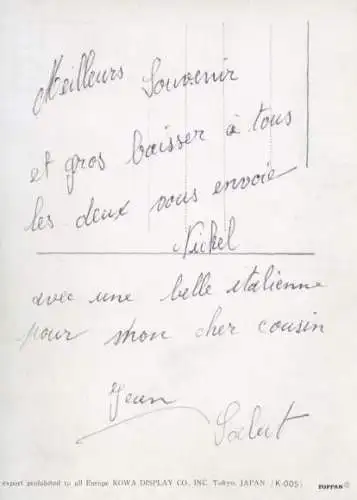 Meilleurs Souvenir
et gros baisser à tous
les deux vous envoie
Nickel
avec une belle italienne
pour mon cher cousin
Jean
Salut
export prohibited to all Europe KOWA DISPLAY CO., INC. Tokyo, JAPAN (K-005)
TOPPAN